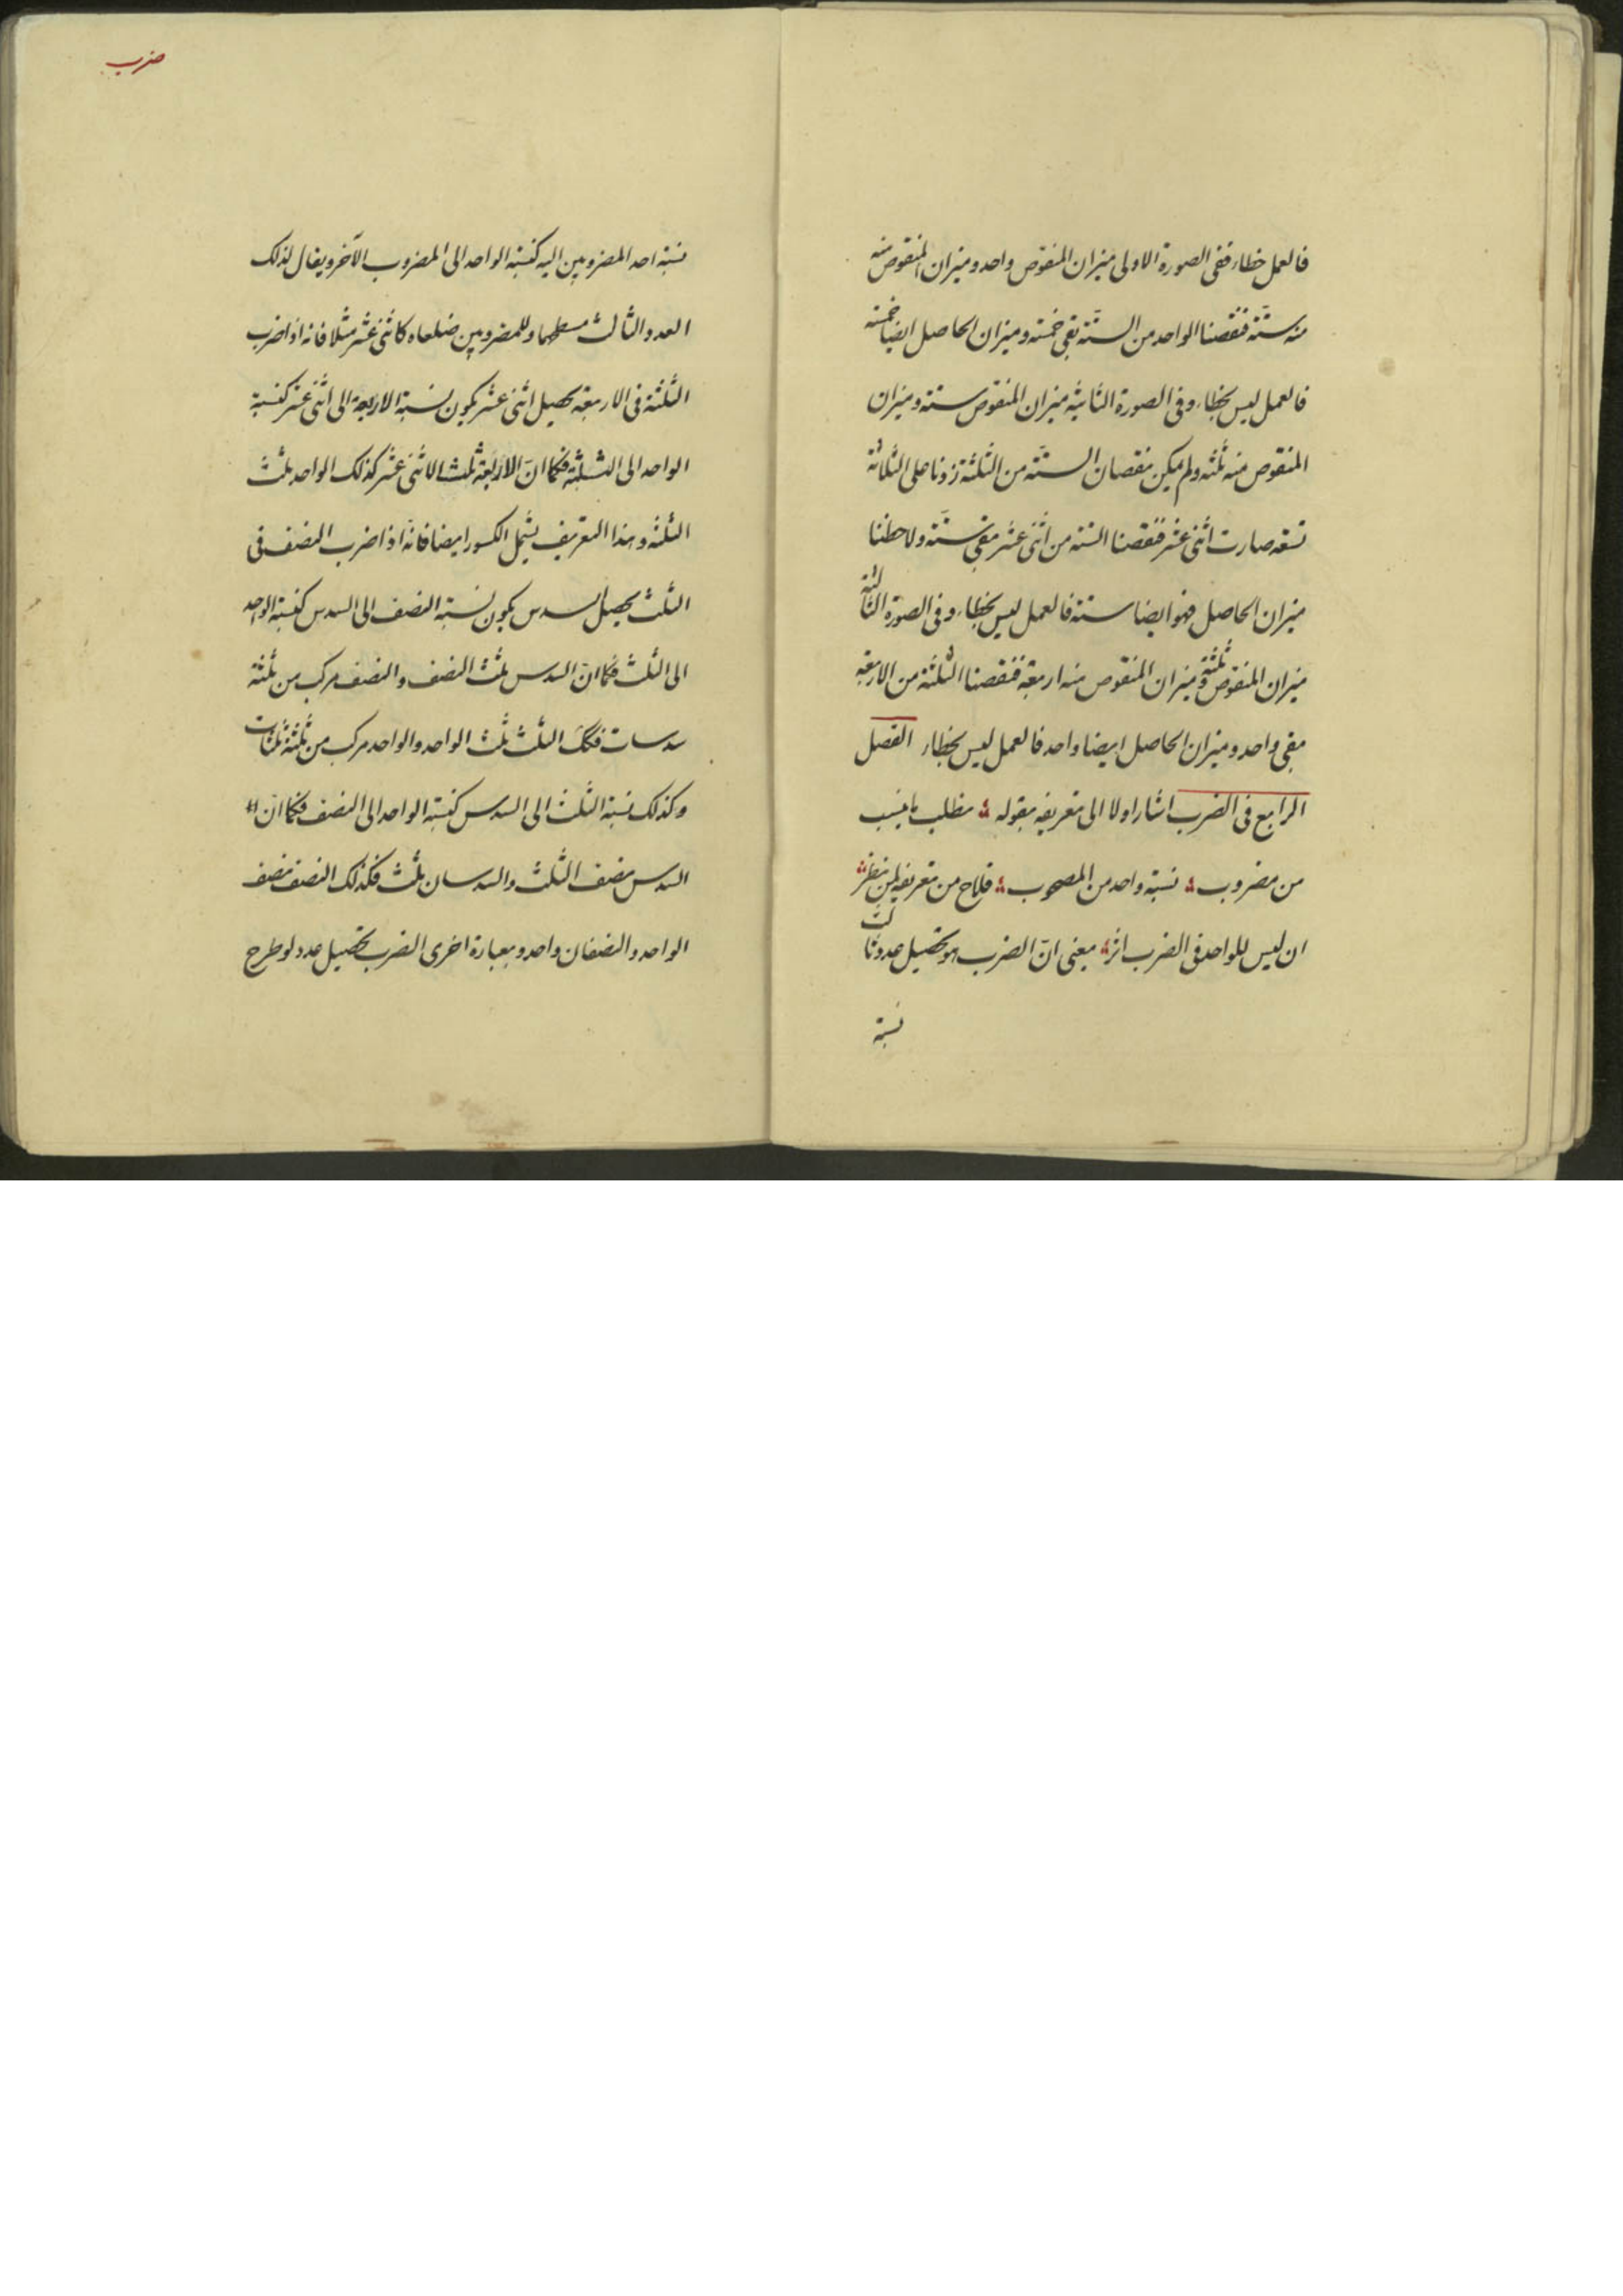 فالعمل خطاء ففى الصورة الاولى ميزان المنقوص واحد وميزان المنقوص منه
منه ستّة فنقصنا الواحد من الستّة بقى خمسة وميزان الحاصل ايضا خمسة
فالعمل ليس بخطاء وفى الصورة الثانية ميزان المنقوص ستة وميزان
المنقوص منه ثلثه ولم يمكن نقصان الستّة من الثلثة زدنا على الثلاثة
تسعه صارت اثنى عشر فنقصنا الستة من اثنى عشر بقى ستّة ولاحظنا
ميزان الحاصل فهو ايضا ستة فالعمل ليس بخطاء وفى الصورة الثالثة
ميزان المنقوص ثلثة وميزان المنقوص منه اربعة فنقصنا الثلثة من الاربعة
بقى واحد وميزان الحاصل ايضا واحد فالعمل ليس بخطاء الفصل
الرابع فى الضرب اشار اولا الى تعريفه بقوله مطلب ما ينسب
من مضروب نسبة واحد من المصحوب فلاح من تعريفه لمن نظر
ان ليس للواحد فى الضرب اثر يعنى انّ الضرب هو تحصيل عدد ثالث
نسبة
ضرب
نسبة احد المضروبين اليه كنسبة الواحد الى المضروب الآخر ويقال لذلك
العدد الثالث مسطحا وللمضروبين ضلعاه كاثنى عشر مثلا فانه اذا ضرب
الثلثة فى الاربعة يحصل اثنى عشر يكون نسبة الاربعة الى اثنى عشر كنسبة
الواحد الى الثلثة فكما انّ الاربعة ثلث الاثنى عشر كذلك الواحد ثلث
الثلثة وهذا التعريف يشمل الكسور ايضا فانّه اذا ضرب النصف فى
الثلث يحصل السدس يكون نسبة النصف الى السدس كنسبة الواحد
الى الثلث فكما انّ السدس ثلث النصف والنصف مركب من ثلثة
سدسات فكك الثلث ثلث الواحد والواحد مركب من ثلثة ثلثات
وكذلك نسبة الثلث الى السدس كنسبة الواحد الى النصف فكما انّ
السدس نصف الثلث والسدسان ثلث فكذلك النصف نصف
الواحد والنصفان واحد وبعبارة اخرى الضرب تحصيل عدد لو طرح